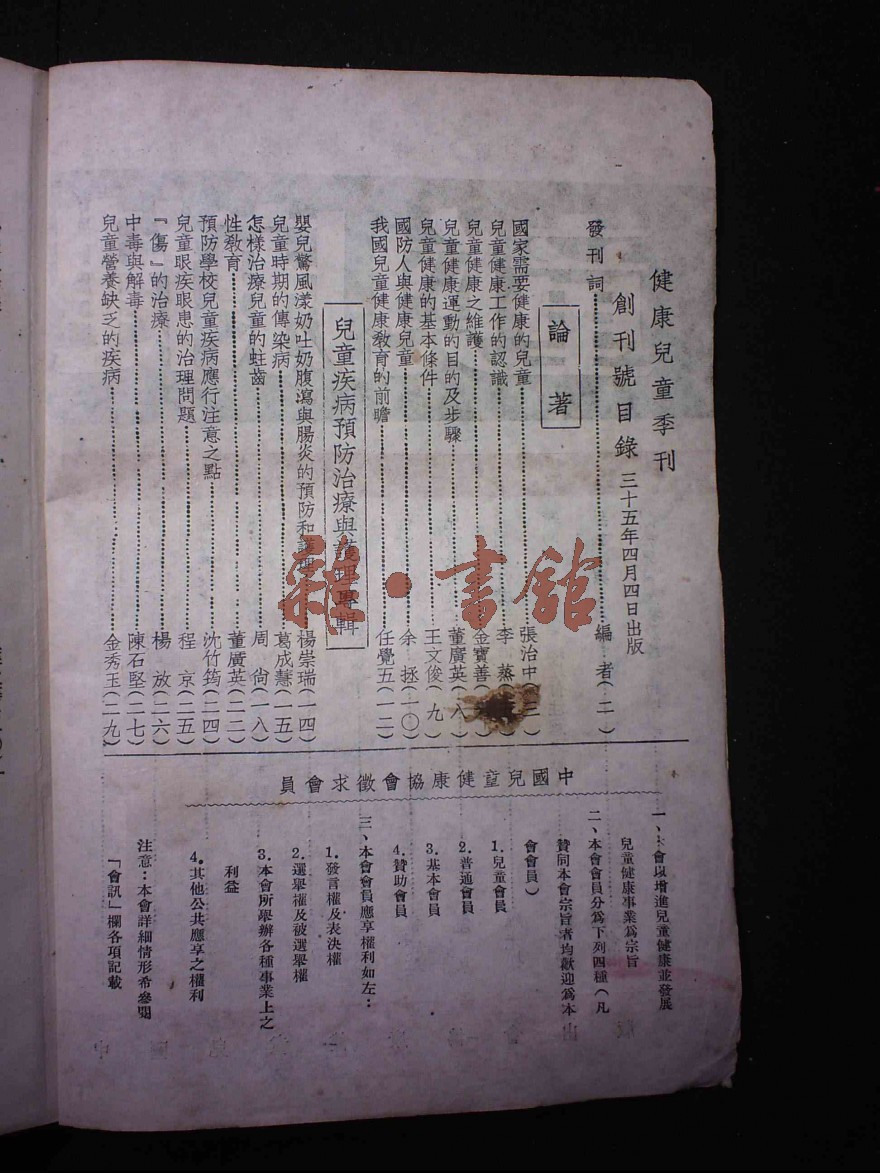 健康兒童季刊
創刊號目錄 三十五年四月四日出版
發刊詞……編者(二)
論著
國家需要健康的兒童……張治中(三)
兒童健康工作的認識……李蒸
兒童健康之維護……金寶善
兒童健康運動的目的及步驟……董廣英(八)
兒童健康的基本條件……王文俊(九)
國防人與健康兒童……余拯(一〇)
我國兒童健康教育的前瞻……任覺五(一二)
兒童疾病預防治療與護理專輯
嬰兒驚風漾奶吐奶腹瀉與腸炎的預防和護理……楊崇瑞(一四)
兒童時期的傳染病……葛成慧(一五)
怎樣治療兒童的蛀齒……周尙(一八)
性教育……董廣英(二二)
預防學校兒童疾病應行注意之點……沈竹筠(二四)
兒童眼疾眼患的治理問題……程京(二五)
『傷』的治療……楊放(二六)
中毒與解毒……陳石堅(二七)
兒童營養缺乏的疾病……金秀玉(二九)
中國兒童健康協會徵求會員
一、本會以增進兒童健康並發展
兒童健康事業爲宗旨
二、本會會員分爲下列四種(凡
贊同本會宗旨者均歡迎爲本
會會員)
1.兒童會員
2.普通會員
3.基本會員
4.贊助會員
三、本會會員應享權利如左：
1.發言權及表決權
2.選舉權及被選舉權
3.本會所舉辦各種事業上之
利益
4.其他公共應享之權利
注意：本會詳細情形希參閱
「會訊」欄各項記載
雜·書館